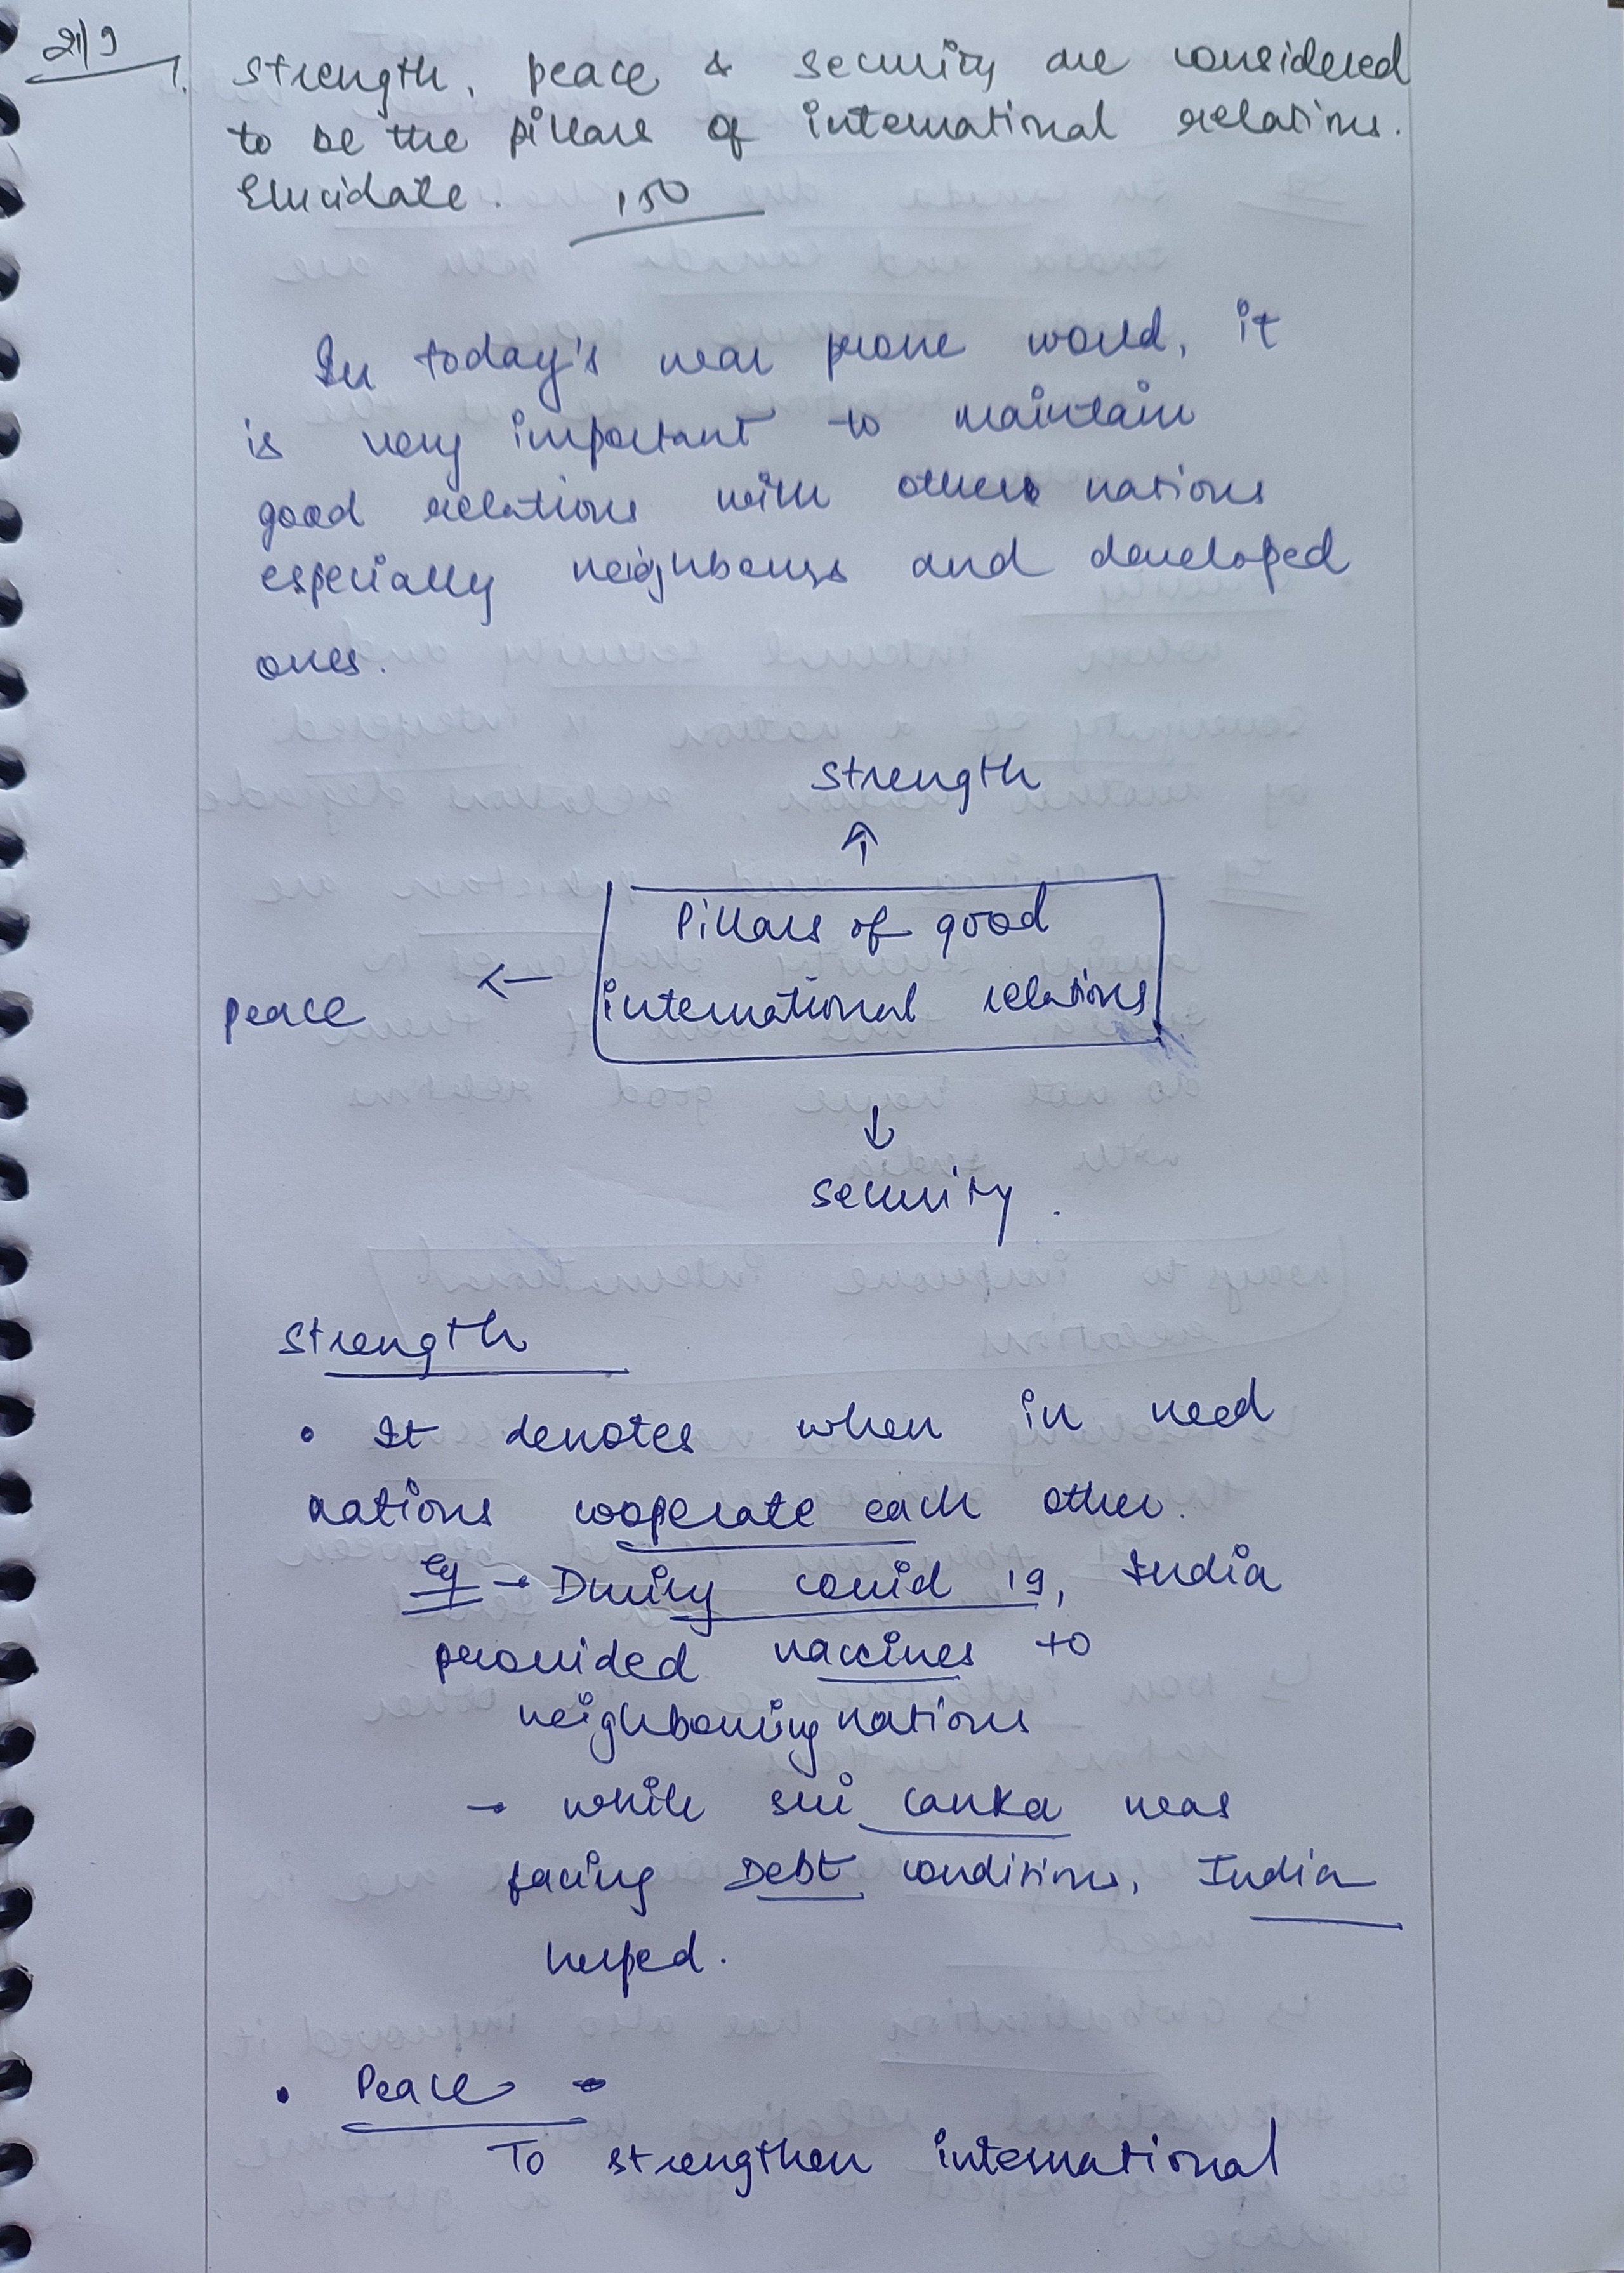 21/9
1. Strength, peace & security are considered
to be the pillars of international relations.
Elucidate. 150
In today's war prone world, it
is very important to maintain
good relations with others nations
especially neighbours and developed
ones.
Strength
↑
Pillars of good
international relations
←
peace
↓
security.
Strength
• It denotes when in need
nations cooperate each other.
Eg → During covid 19, India
provided vaccines to
neighbouring nations
→ while sri lanka was
facing Debt conditions, India
helped.
• Peace -
To strengthen international